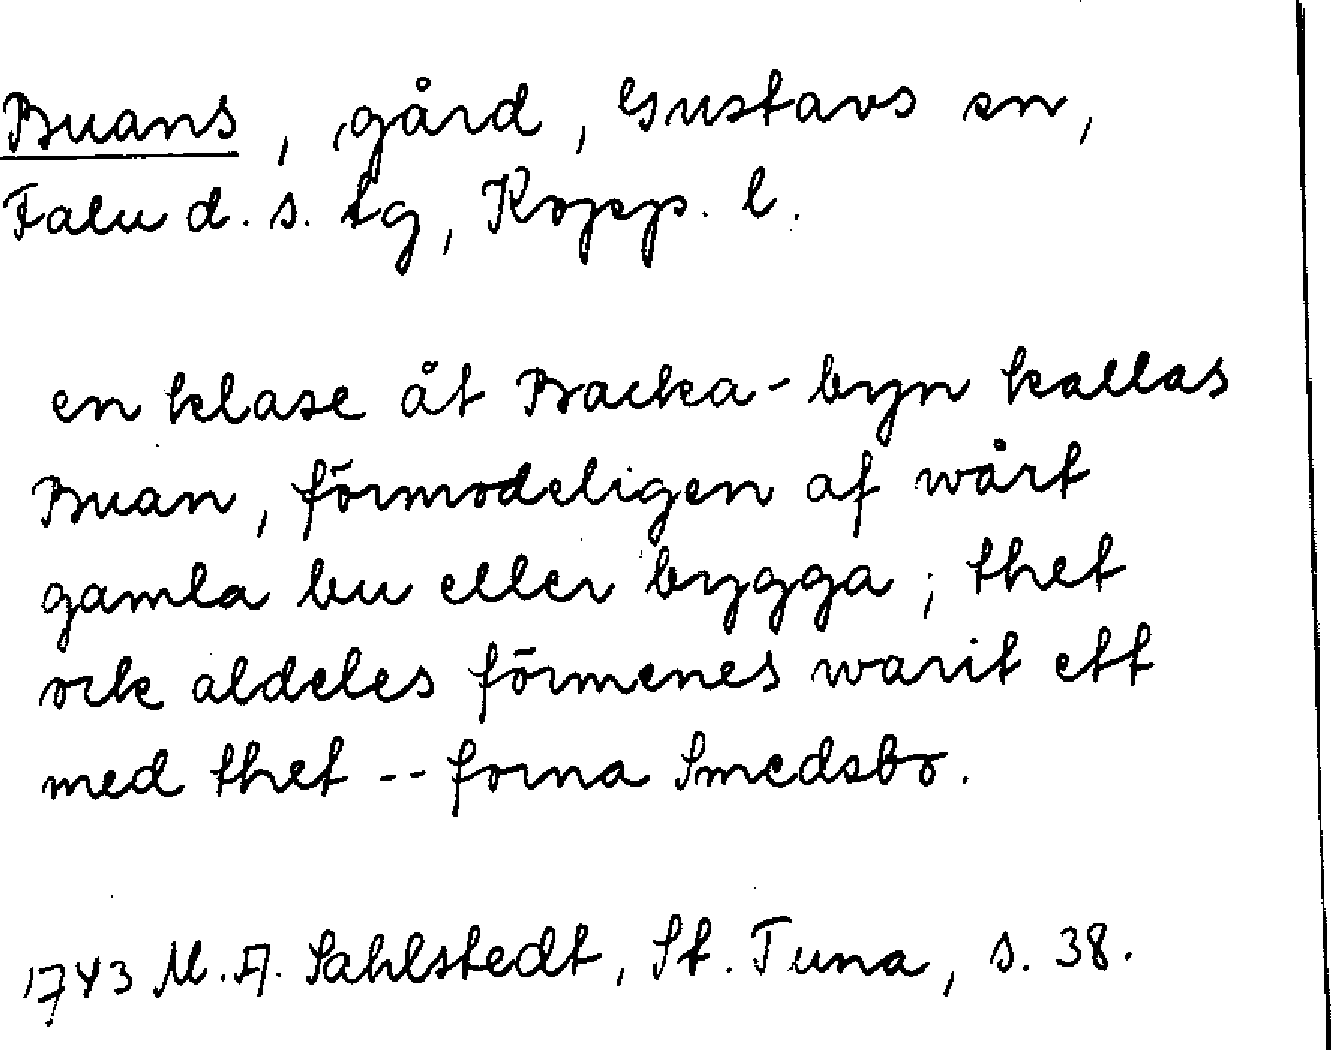 Buans, gård, Gustavs sn,
Falu d. s. tg, Kopp. l.
en klase åt Backa-byn kallas
Buan, förmodeligen af wårt
gamla bu eller bygga; thet
ock aldeles förmenes warit ett
med thet -- forna Smedsbo.
1743 M. A. Sahlstedt, St. Tuna, s. 38.